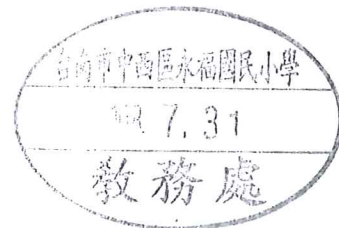 台南市中西區永福國民小學
7. 31
教務處